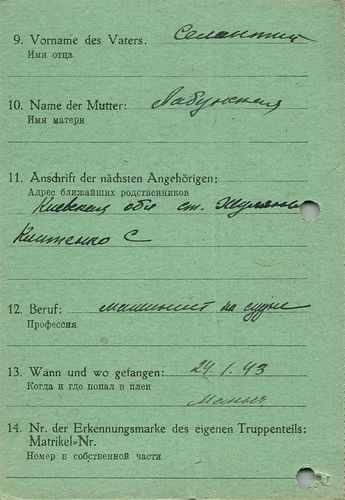 9. Vorname des Vaters. Селантий
Имя отца
10. Name der Mutter: Лабунская
Имя матери
11. Anschrift der nächsten Angehörigen:
Адрес ближайших родственников
Киевская обл ст. Жуляны
Книтенко С
12. Beruf: машинист на судне
Профессия
13. Wann und wo gefangen: 24.1.43
Когда и где попал в плен
14. Nr. der Erkennungsmarke des eigenen Truppenteils:
Matrikel-Nr.
Номер в собственной части